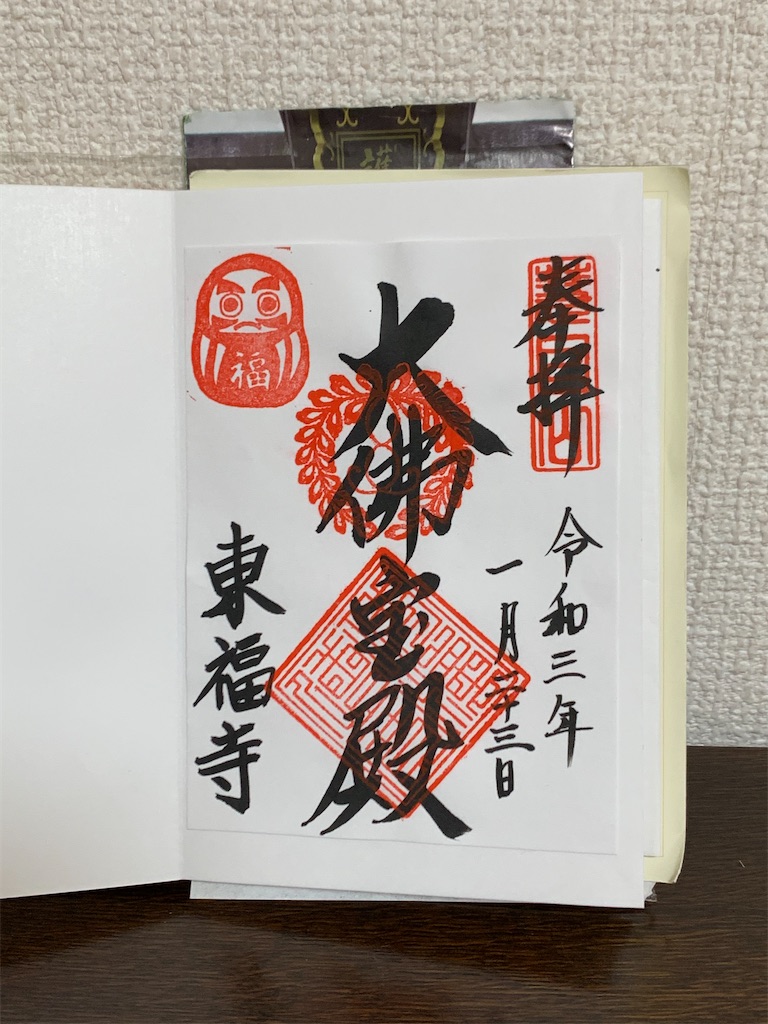 奉拝
令和三年
一月二十三日
大佛宝殿
福
東福寺
護